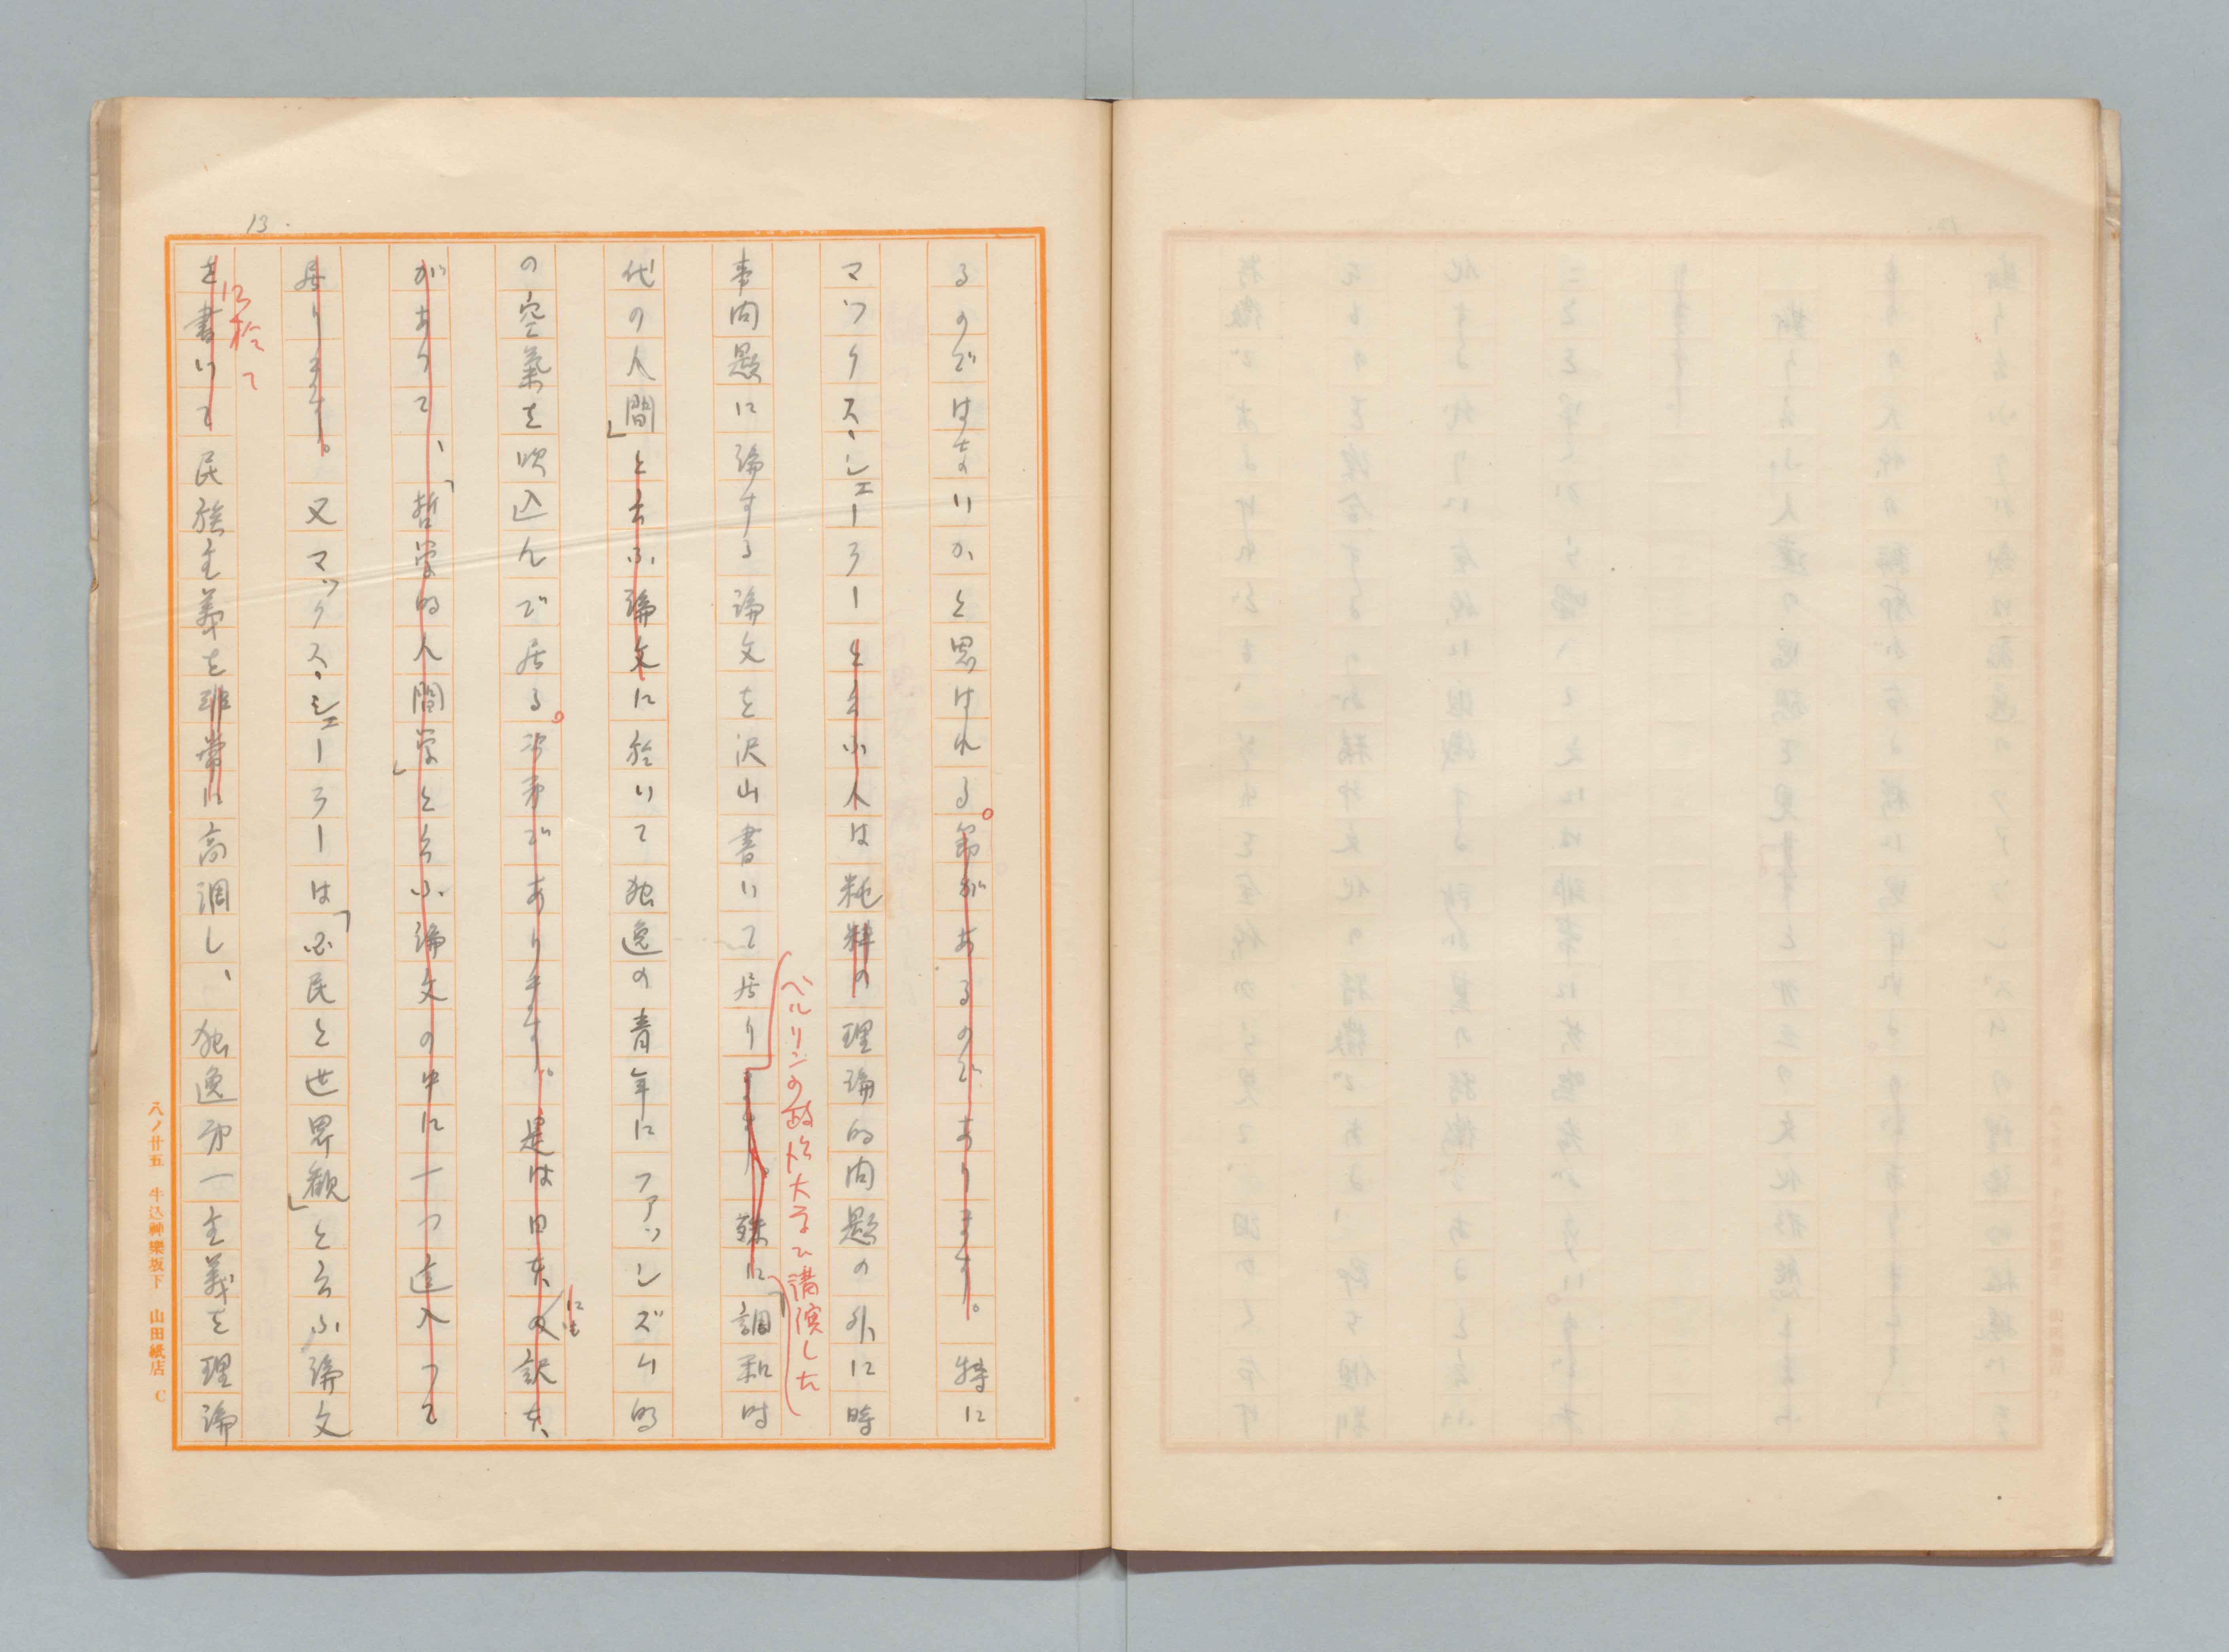 13.
るのではないかと思はれる。節があるのであります。特に
マックス、シェーラーと云ふ人は純粋の理論的問題の外に時
事問題に論する論文を沢山書いて居ります。殊に「調和時
ベルリンの政治大学で講演した
代の人間」と云ふ論文に於いて独逸の青年にファッシズム的
の空氣を吹込んで居る。次第であります。是は日本の訳本
にも
がありて、「哲学的人間学」と云ふ論文の中に一つ這入つて
居ります。又マックス、シェーラーは「国民と世界観」と云ふ論文
に於て
を書いて民族主義を非常に高調し、独逸第一主義を理論
八ノ廿五 牛込神樂坂下 山田紙店 C